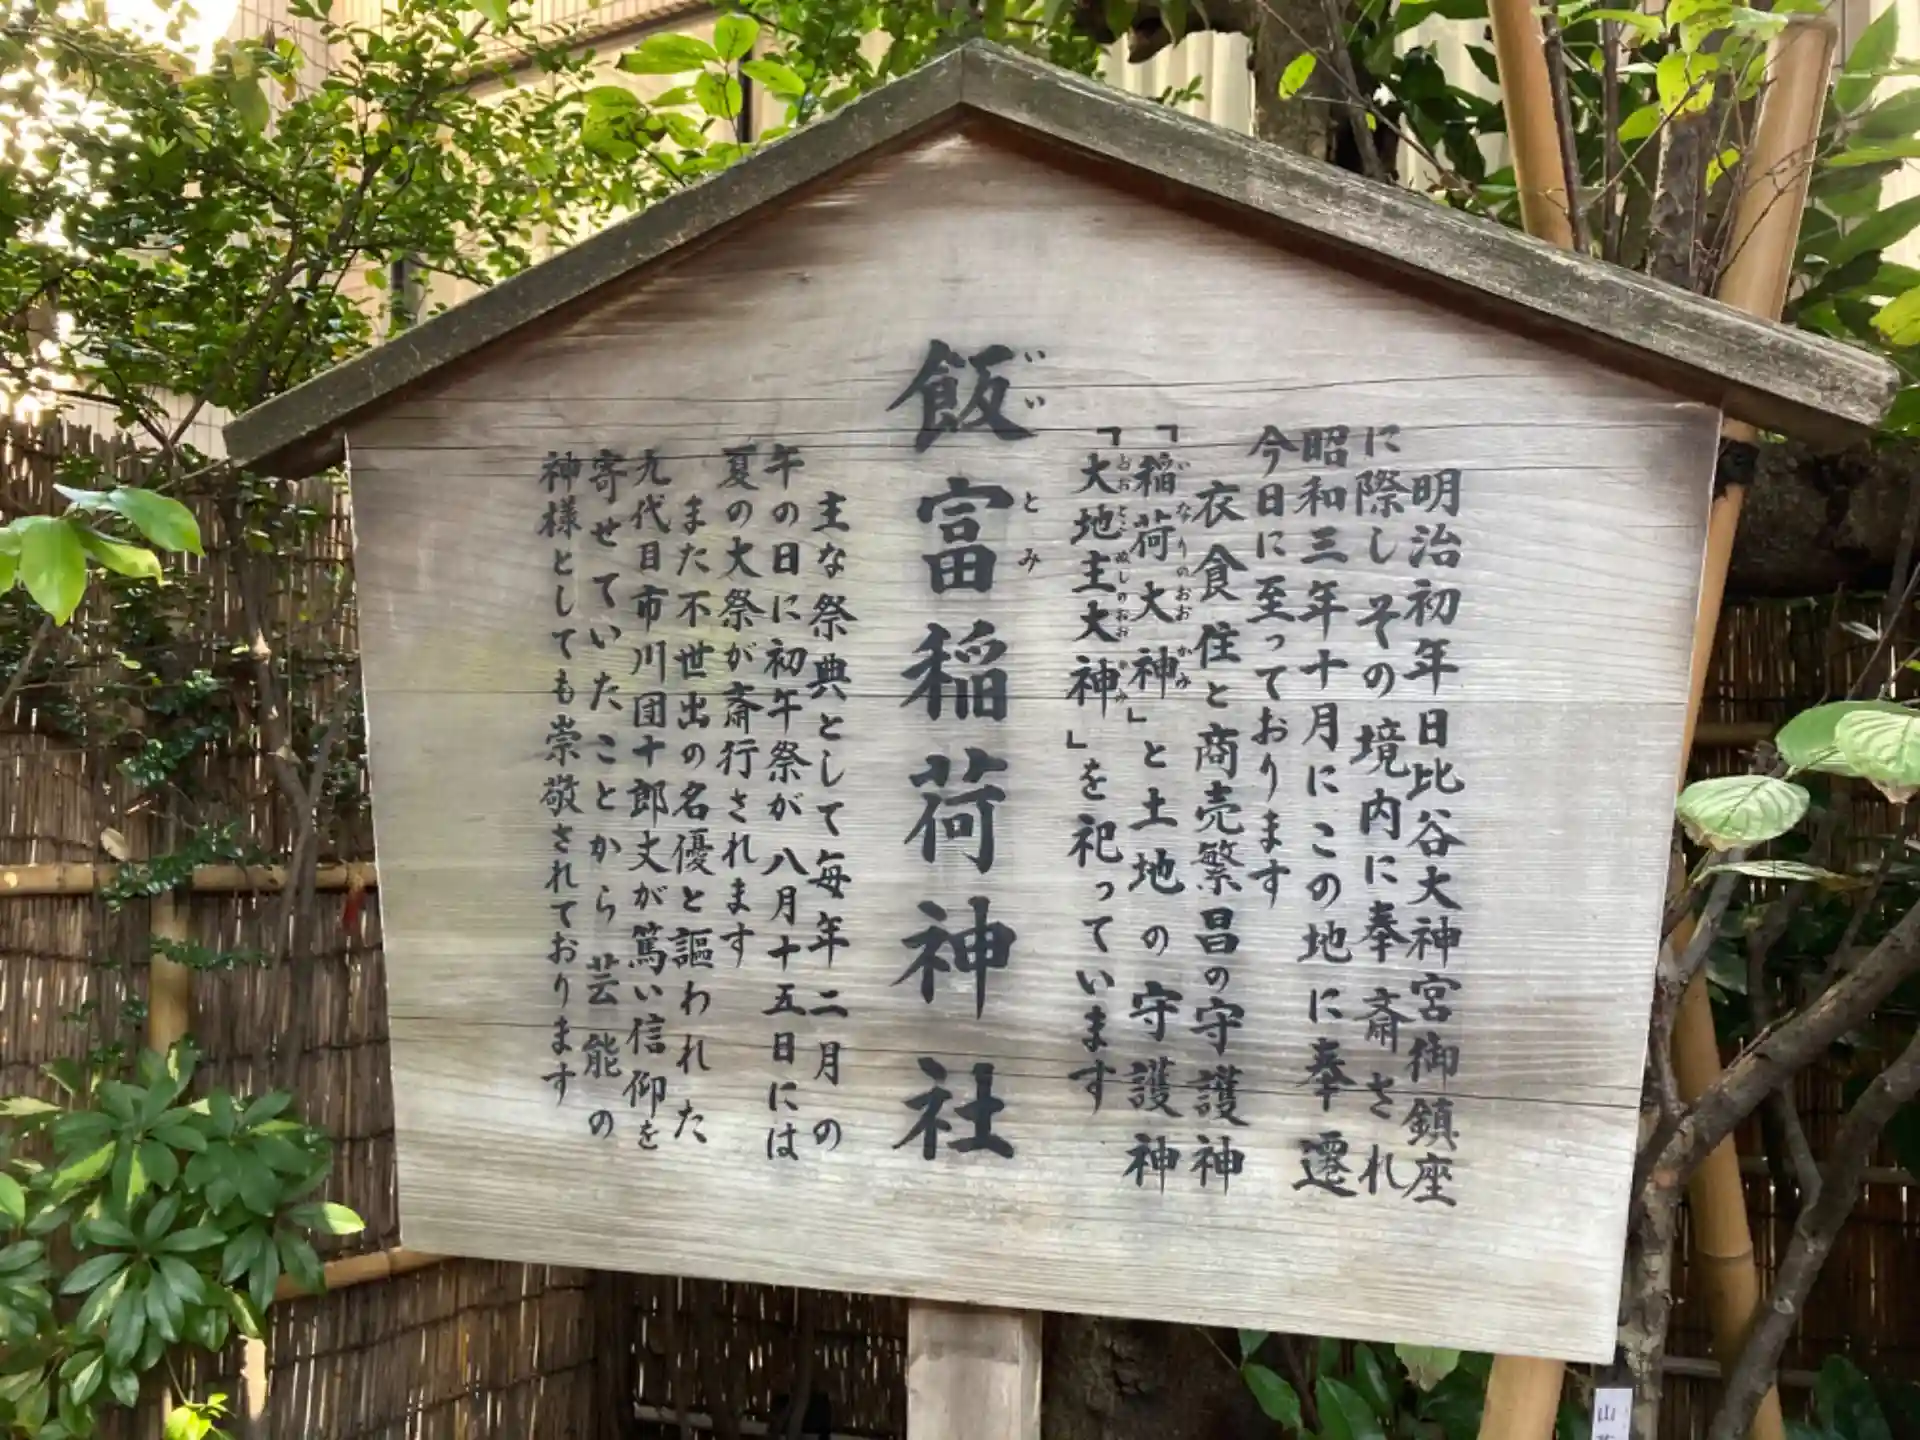 明治初年日比谷大神宮御鎮座
に際しその境内に奉斎され
昭和三年十月にこの地に奉遷
今日に至っております
衣食住と商売繁昌の守護神
「稲荷大神」と土地の守護神
いなりのおおかみ
「大地主大神」を祀っています
おおとこぬしのおおかみ
飯富稲荷神社
いいとみ
主な祭典として毎年二月の
午の日に初午祭が八月十五日には
夏の大祭が斎行されます
また不世出の名優と謳われた
九代目市川団十郎丈が篤い信仰を
寄せていたことから芸能の
神様としても崇敬されております
山